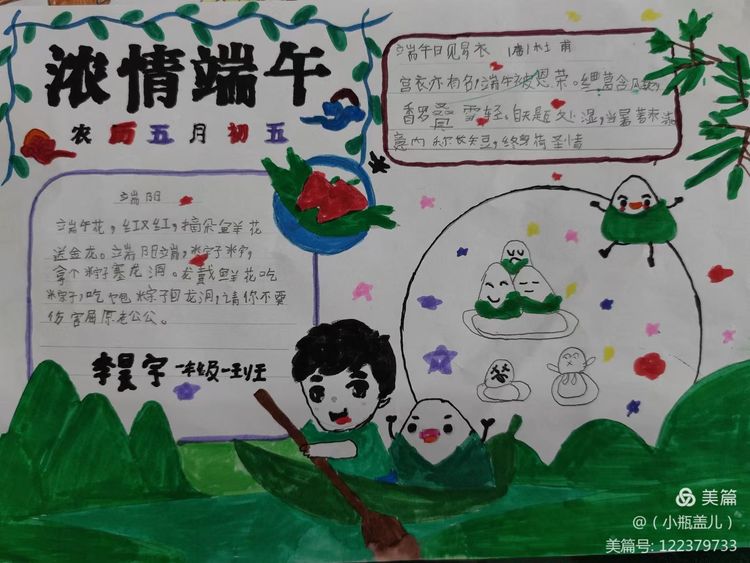 浓情端午
农历五月初五
端午日见易衣 唐 杜甫
宫衣亦有名,端午被恩荣。细葛含风软,
香罗叠雪轻。自天题处湿,当暑著来清。
意内称长短,终身荷圣情
端阳
端午花,红又红,摘朵鲜花
送金龙。端阳端,粽子粽,
拿个粽子塞龙洞。龙戴鲜花吃
粽子,吃包粽子回龙洞,请你不要
伤害屈原老公公。
李昊宇 一年级一班
美篇
@(小瓶盖儿)
美篇号: 122379733